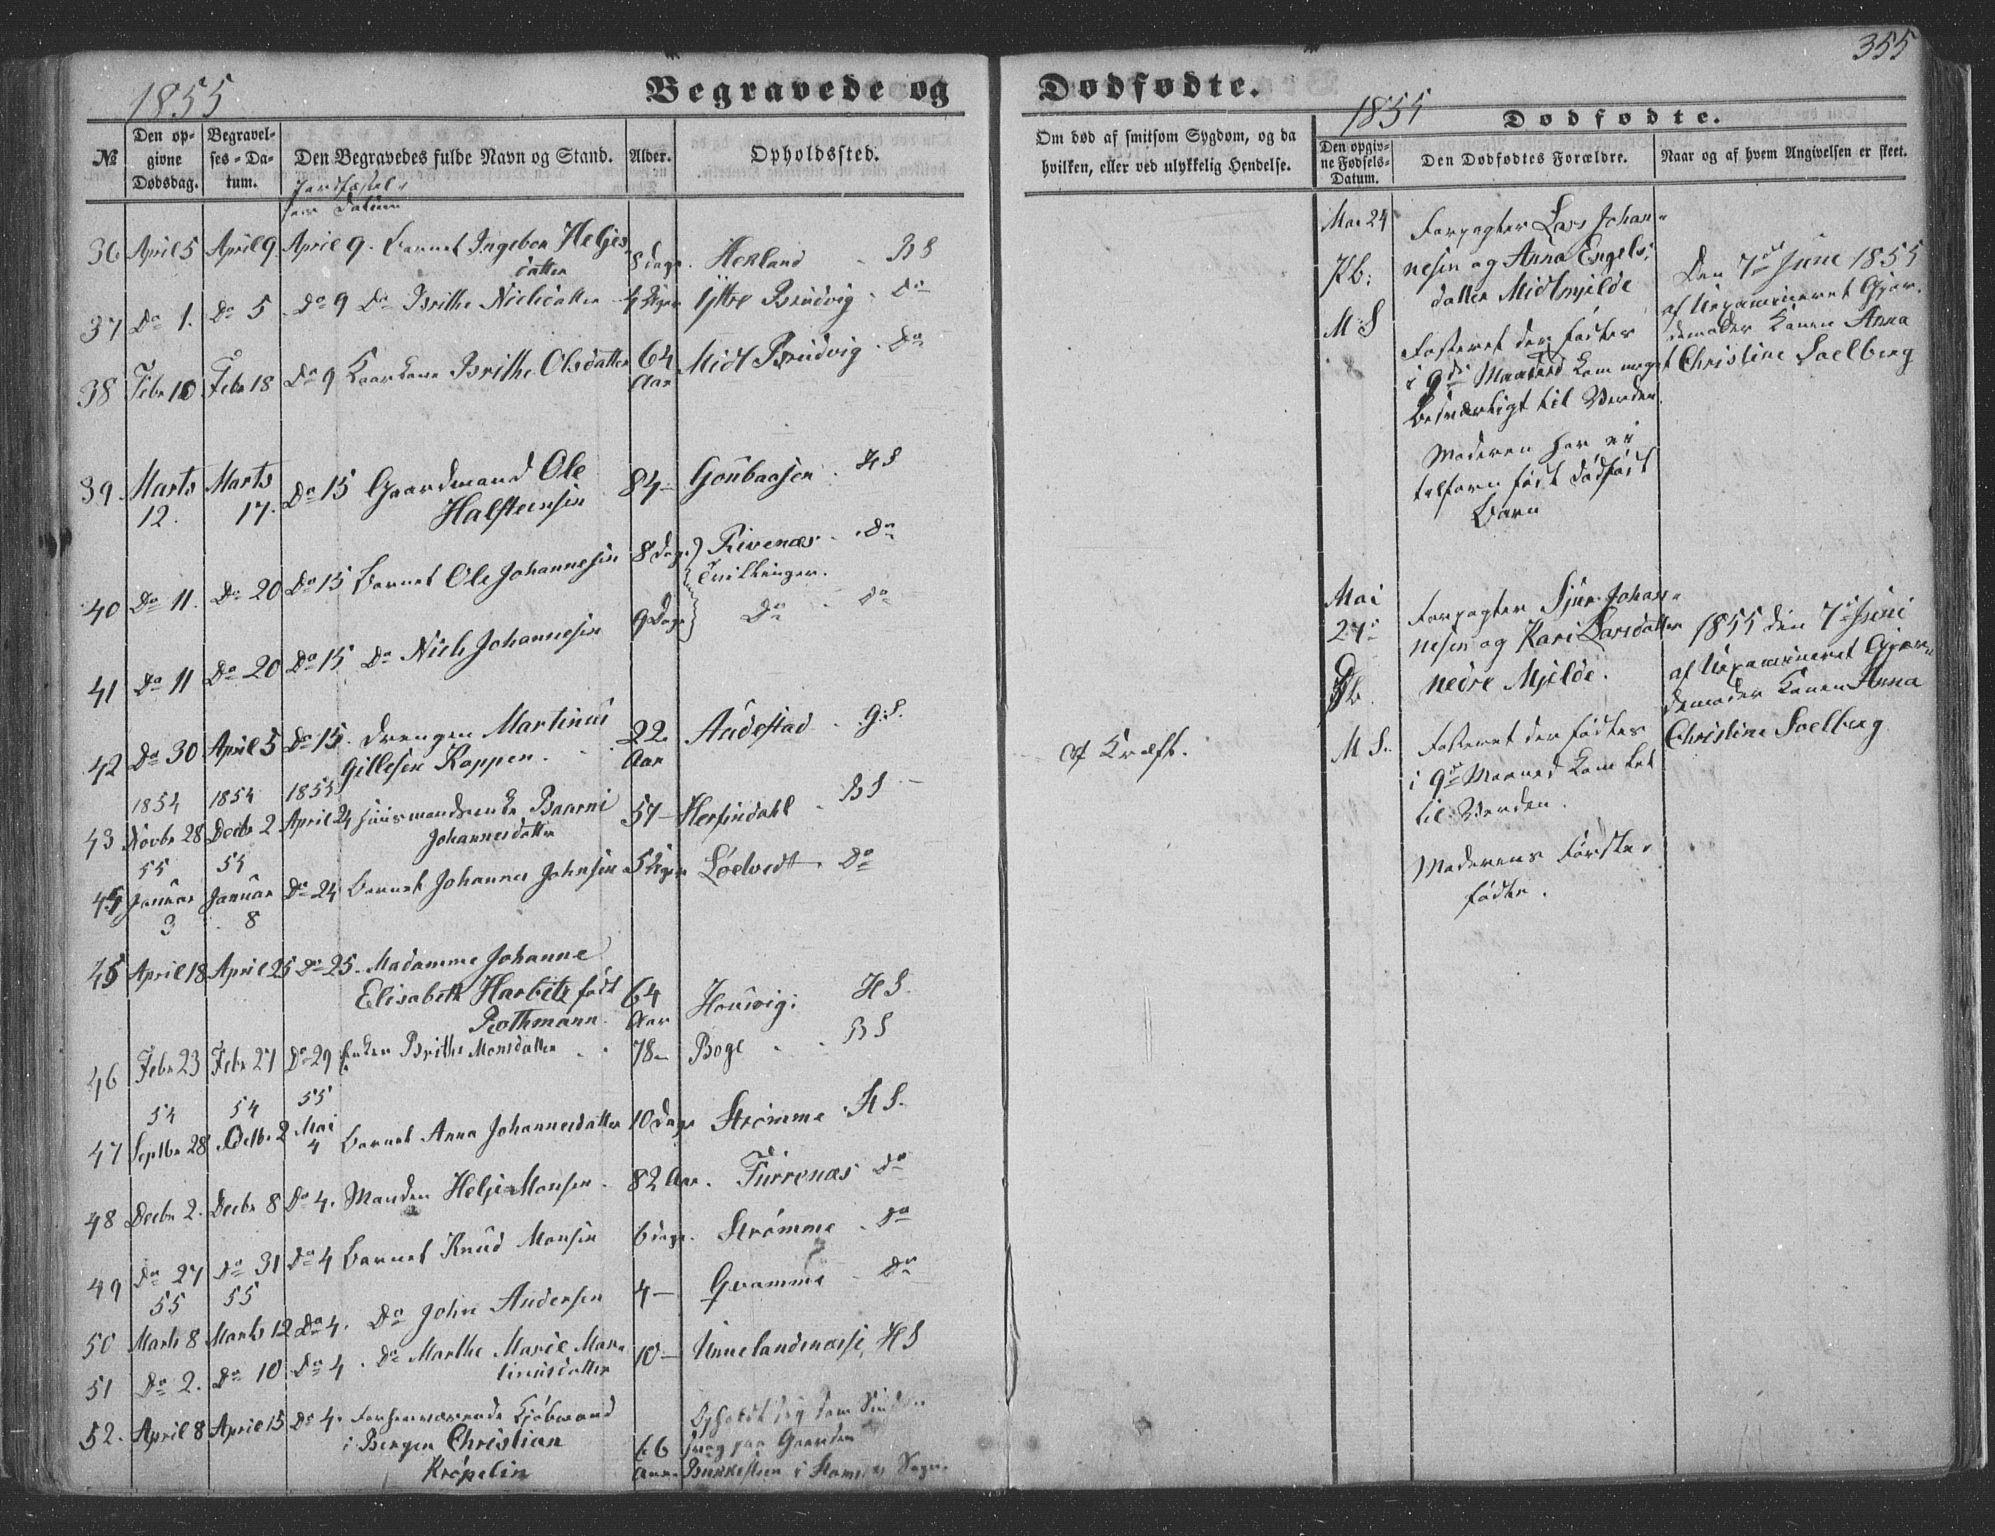 355
1855
Begravede og
Dødfødte.
1855
Dødfødte.
№
Den opgivne Dødsdag.
Begravelses-Datum.
Den Begravedes fulde Navn og Stand.
Alder.
Opholdssted.
Om død af smitsom Sygdom, og da hvilken, eller ved ulykkelig Hendelse.
Den opgivne Fødsels-Datum.
Den Dødfødtes Forældre.
Naar og af hvem Angivelsen er skeet.
Jordfæstelsens Datum
36 April 5 April 9. April 9. Barnet Ingebor Heljes
datter 8 Dage Herland BS
37 Do 1. Do 5 Do 9 Do Brithe Nielsdatter 4 Uger Ijttre Brudvig Do
38 Febr 10 Febr 18 Do 9 Kaarkone Brithe Olsdatter 64
Aar Midt Brudvig Do
39 Marts
12. Marts
17. Do 15 Gaardmand Ole
Halsteensen 84 - HS
40 Do 11. Do 20 Do 15 Barnet Ole Johannesen 8 Dage Rivenæs Do
Tvillinger.
41 Do 11 Do 20 Do 15 Do Niels Johannesen 9 Dage Do Do
42 Do 30 April 5 Do 15. Drengen Martinus
Gillesen Koppen. 22
Aar Audestad G.S. af Kræft.
1854 1854 1855
43 Novbr 28 Decbr 2 April 24 Huusmandsenke Baarni
Johannesdatter 57 - Herfindahl BS
55 55
Januar
3 Januar
8 Do 24 Barnet Johannes Johnsen 5 Uger Lødvedt Do
45 April 18 April 25 Do 25. Madamme Johanne
Elisabeth Harbitz født
Rothmann. 64
Aar Houvig HS
46 Febr 23 Febr 27 Do 29 Enken Brithe Monsdatter 78 - Boge BS
54 54 55
47 Septbr 28 Octbr 2 Mai
4 Barnet Anna Johannesdatter 10 Dage Strømme HS.
48 Decbr 2. Decbr 8 Do 4. Manden Helje Monsen 82 Aar. Furrenæs Do
49 Do 27 Do 31 Do 4 Barnet Knud Monsen 6 Dage. Strømme Do
55 55
50 Marts 8 Marts 12 Do 4. Do John Andersen 4 - Qvamme Do
51 Do 2. Do 10 Do 4. Do Marthe Marie Mar-
tinusdatter 10 - HS
52. April 8 April 15 Do 4. Forhenværende Kjøbmand
i Bergen Christian
Krøpelin 66
Aar. Opholdt sig som
paa Gaarden
i Sogn.
Mai 24
Kb:
M:S
Forpagter Lars Johan-
nesen og Anna Engels-
datter Midtmjelde
Fosteret der fødtes
i 9de Maaned kom meget
besværligt til Verden.
Moderen har ei
født dødfødt
Barn
Den 7de Juni 1855
af Uexamineret Gjor-
demoder Konen Anna
Christine Soelberg
Mai
27de
M S.
Forpagter Sjur Johan-
nesen og Kari Larsdatter
nedre Mjelde.
Fosteret der fødtes
i 9de Maaned kom let
til Verden.
Moderens første-
fødte.
1855 den 7de Juni
af Uexamineret Gjor-
demoder Konen Anna
Christine Soelberg